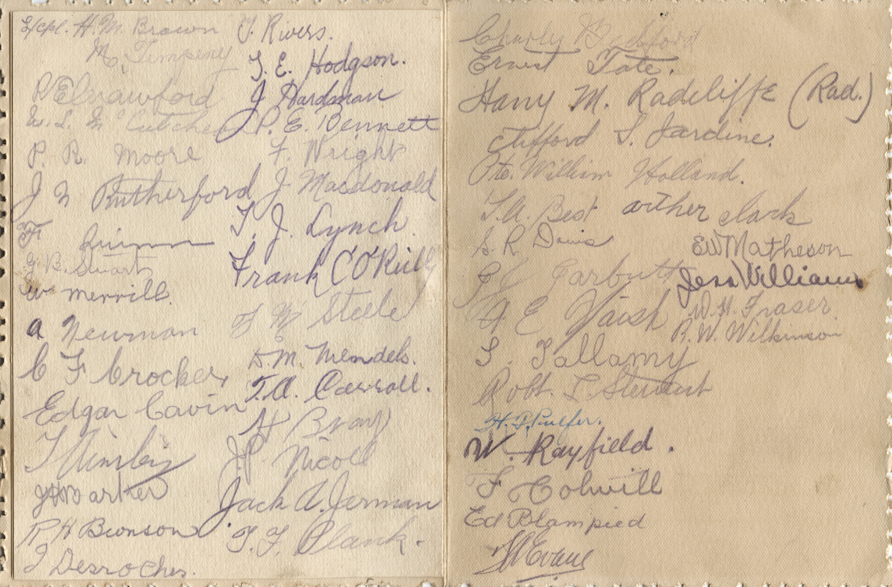 L/Cpl. H. M. Brown
Mc Tempeny
P. E. Crawford
W. L. McCutcheo
P. R. Moore
J N Rutherford
F Quinn
G. B. Stuart
Wm Merrill.
A Newman
C F Crocker
Edgar Cavin
R H Bronson
J Desroches.
J. Rivers.
T. E. Hodgson.
J Hardsman
P. E. Bennett
F. Wright
J Macdonald
T. J. Lynch.
Frank C O'Reilly
Steele
D M. Mendels.
T. A. Carroll.
H Bray
J. P. Nicoll
Jack A. Jerman
T. F. Plank.
Charly
Ernest Tate.
Harry M. Radcliffe (Rad.)
Clifford S. Jardine.
Pte. William Holland.
T. A. Best arther clark
S. R. Davis EW Matheson
Garbutt Jess Williams
A E Vaish W. H. Fraser.
R. W. Wilkinson
S. Tallamy
Robt. L Stewart
H. Pulfer.
W. Rayfield.
F Colwill
Ed Blampied
Evans